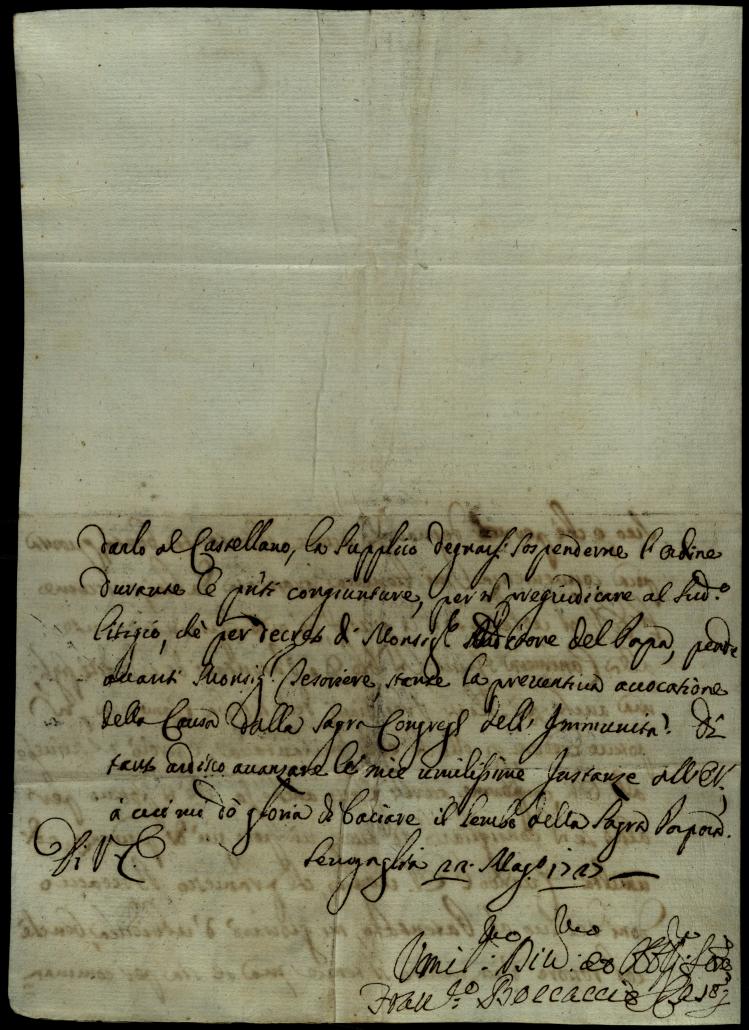 darlo al Castellano, la supplico degnarsi sospenderne l'ordine
durante le p̃nti congiunture, per ñ pregiudicare al Sud.º
litigio, che per decreto di Monsig.r Auditore del Papa, pende
avanti Monsig.r Tesoriere, stante la preventiva avocatione
della Causa dalla Sagra Congreg.e dell'Immunità. Di
tanto ardisco avanzare le mie umilissime Instanze all'E.V.,
à cui mi dò gloria di baciare il lembo della Sagra Porpora.
Di V.E.
Senigaglia 22. Mag.o 1727
Umil.mo Div.mo ed Obblig.mo
Fran.co Boccacci